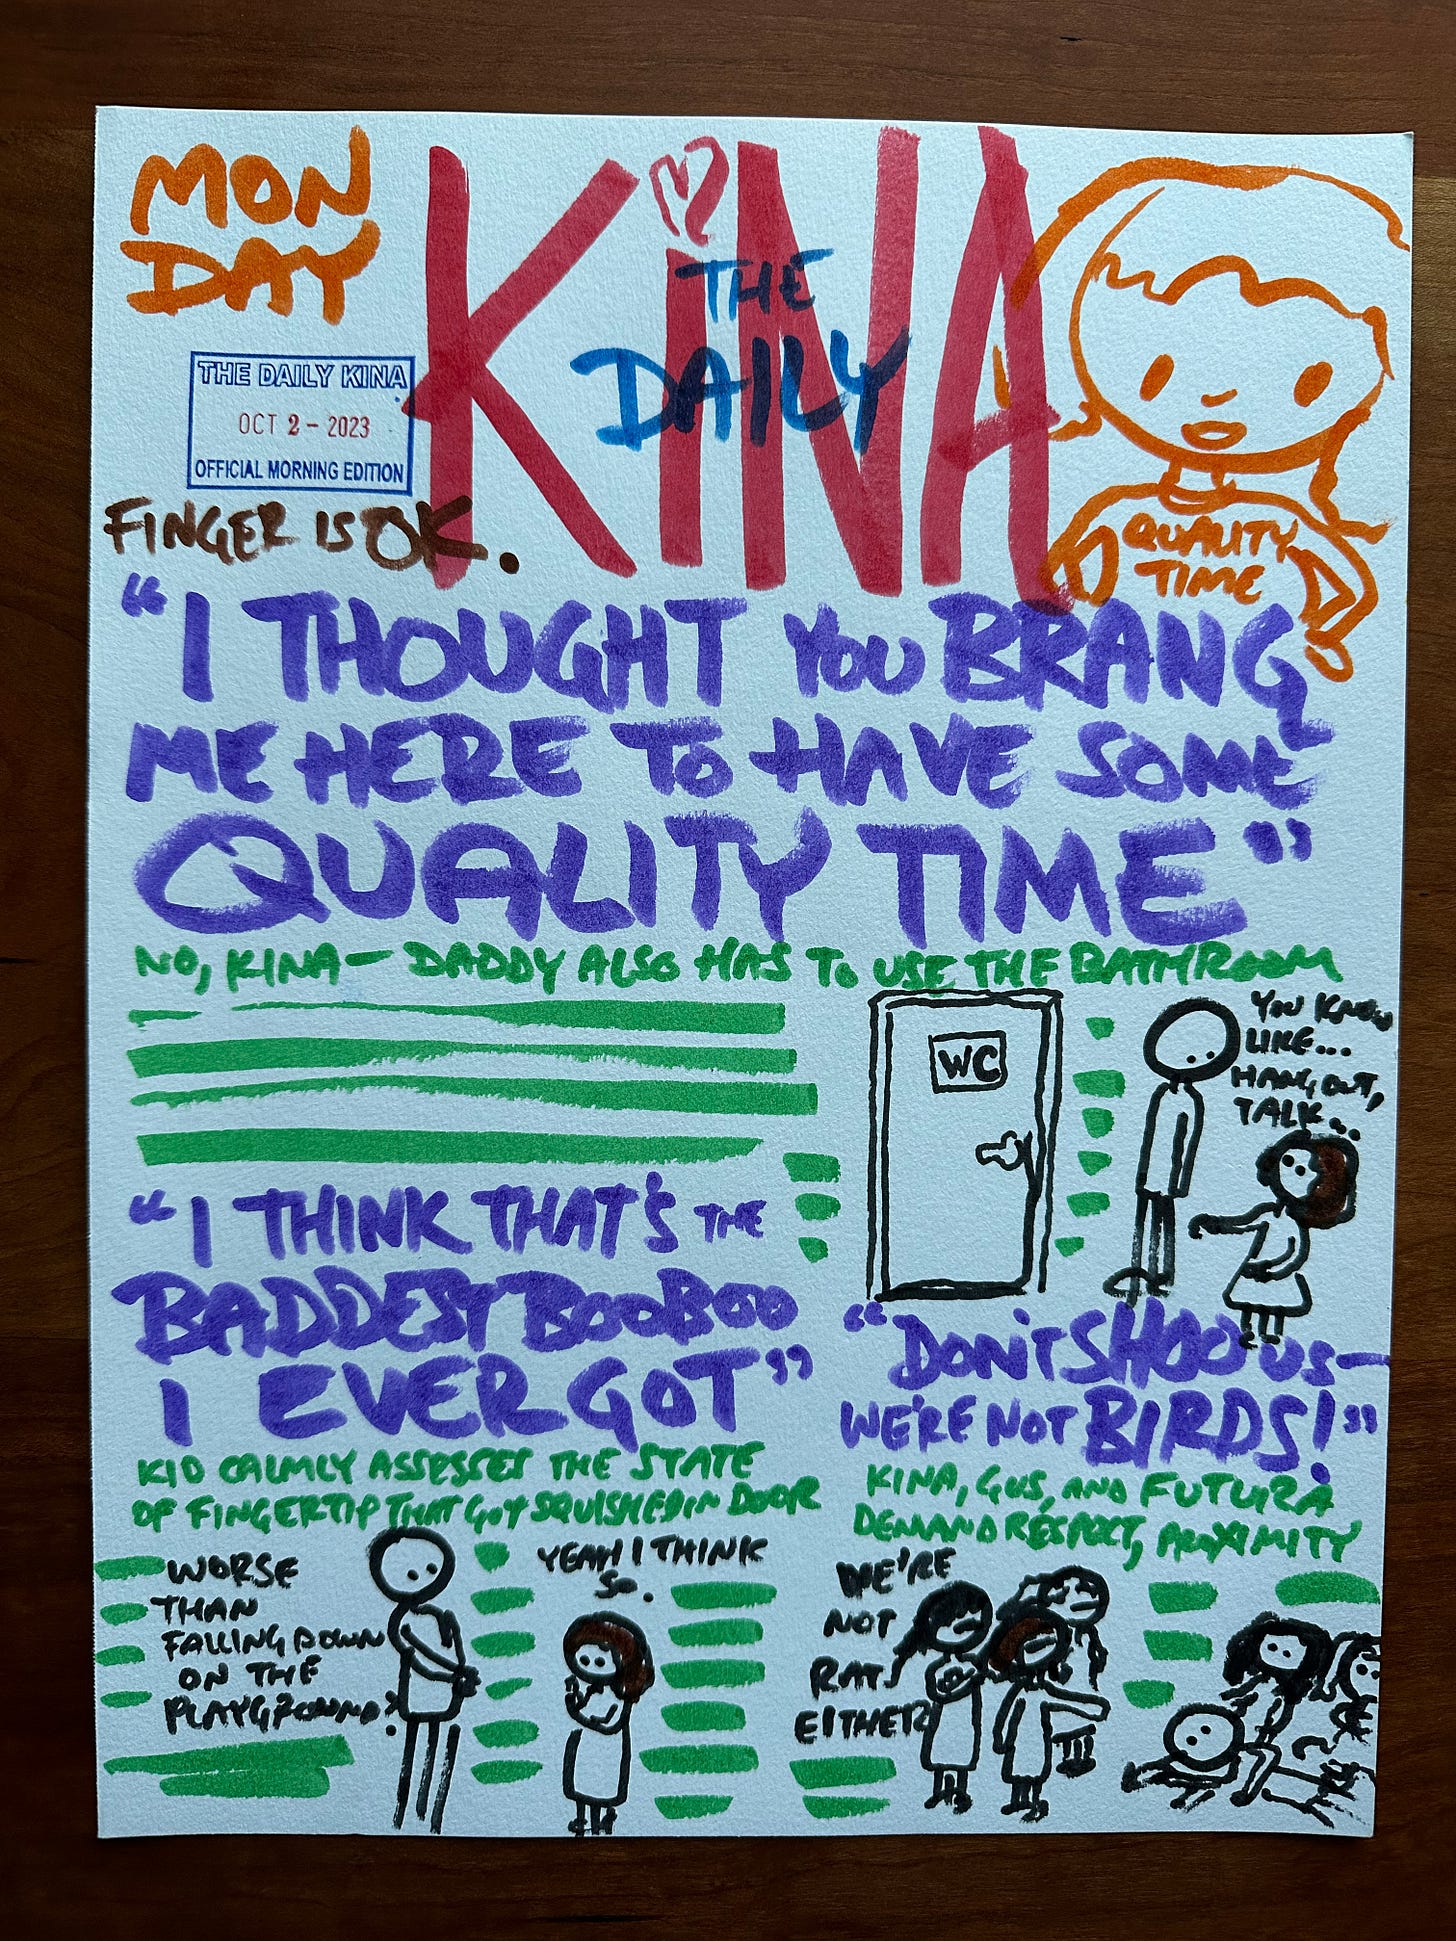 MON
DAY
KiNA
THE
DAILY
THE DAILY KINA
OCT 2 - 2023
OFFICIAL MORNING EDITION
FINGER IS OK.
QUALITY
TIME
"I THOUGHT YOU BRANG
ME HERE TO HAVE SOME
QUALITY TIME"
NO, KINA— DADDY ALSO HAS TO USE THE BATHROOM
WC
YOU KNOW
LIKE...
HANG OUT,
TALK...
"I THINK THAT'S THE
BADDEST BOOBOO
I EVER GOT"
KID CALMLY ASSESSES THE STATE
OF FINGERTIP THAT GOT SQUISHED IN DOOR
WORSE
THAN
FALLING DOWN
ON THE
PLAYGROUND?
YEAH I THINK
SO.
"DON'T SHOO US—
WE'RE NOT BIRDS!"
KINA, GUS, AND FUTURA
DEMAND RESPECT, PROXIMITY
WE'RE
NOT
RATS
EITHER